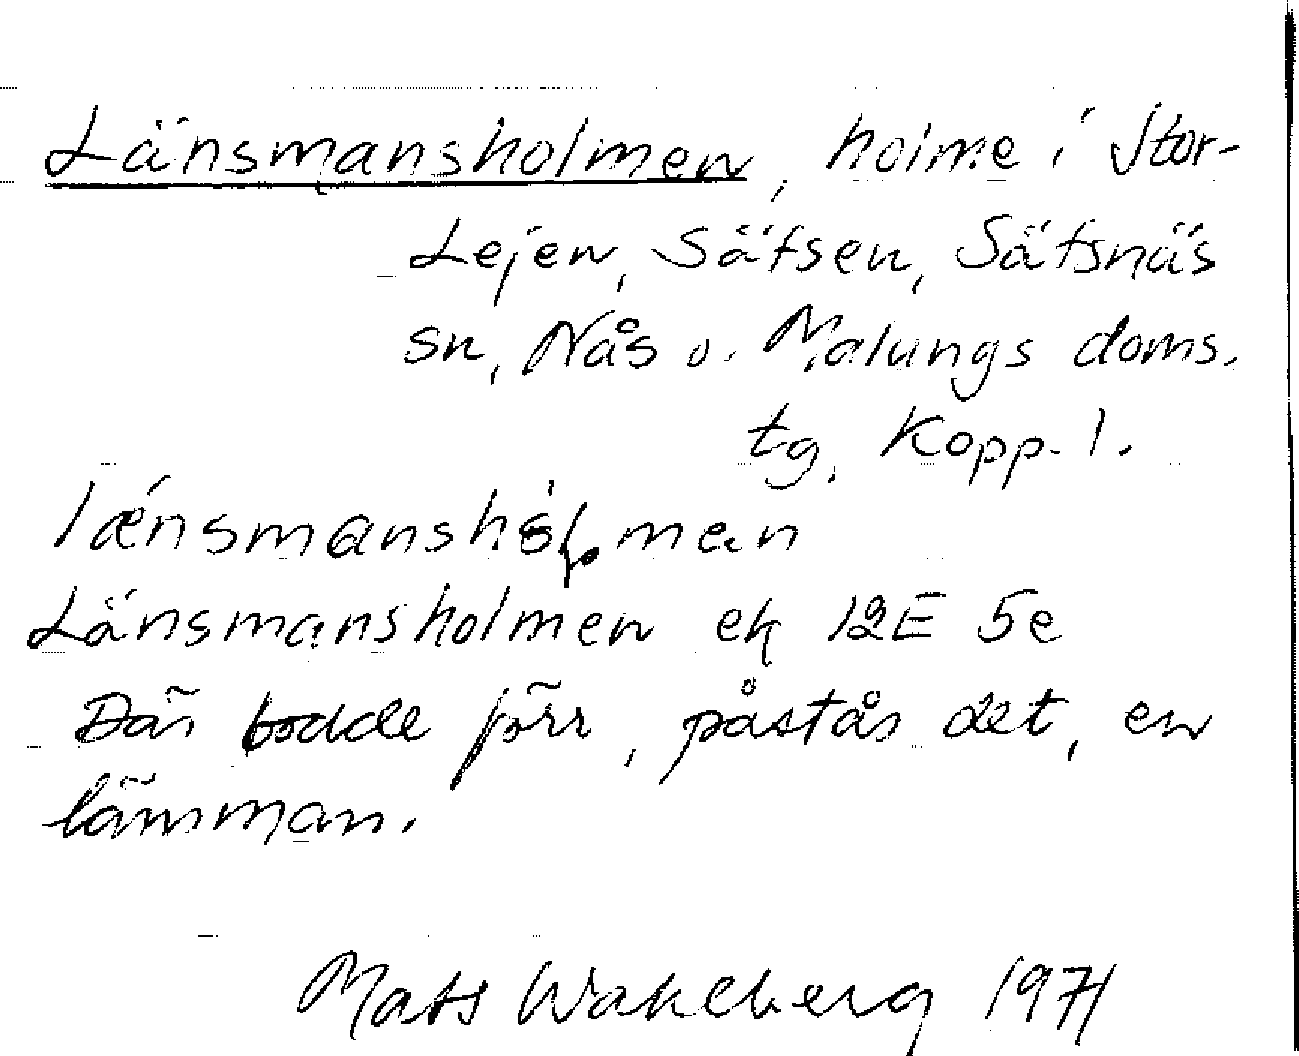 Länsmansholmen, holme i Stor-
Lejen, Sätsen, Sätsnäs
sn, Nås o. Malungs doms.
tg, Kopp. l.
lænsmanshól̥man
Länsmansholmen ek 12E 5e
Där bodde förr, påstår det, en
länsman.
Mats Wahlberg 1971